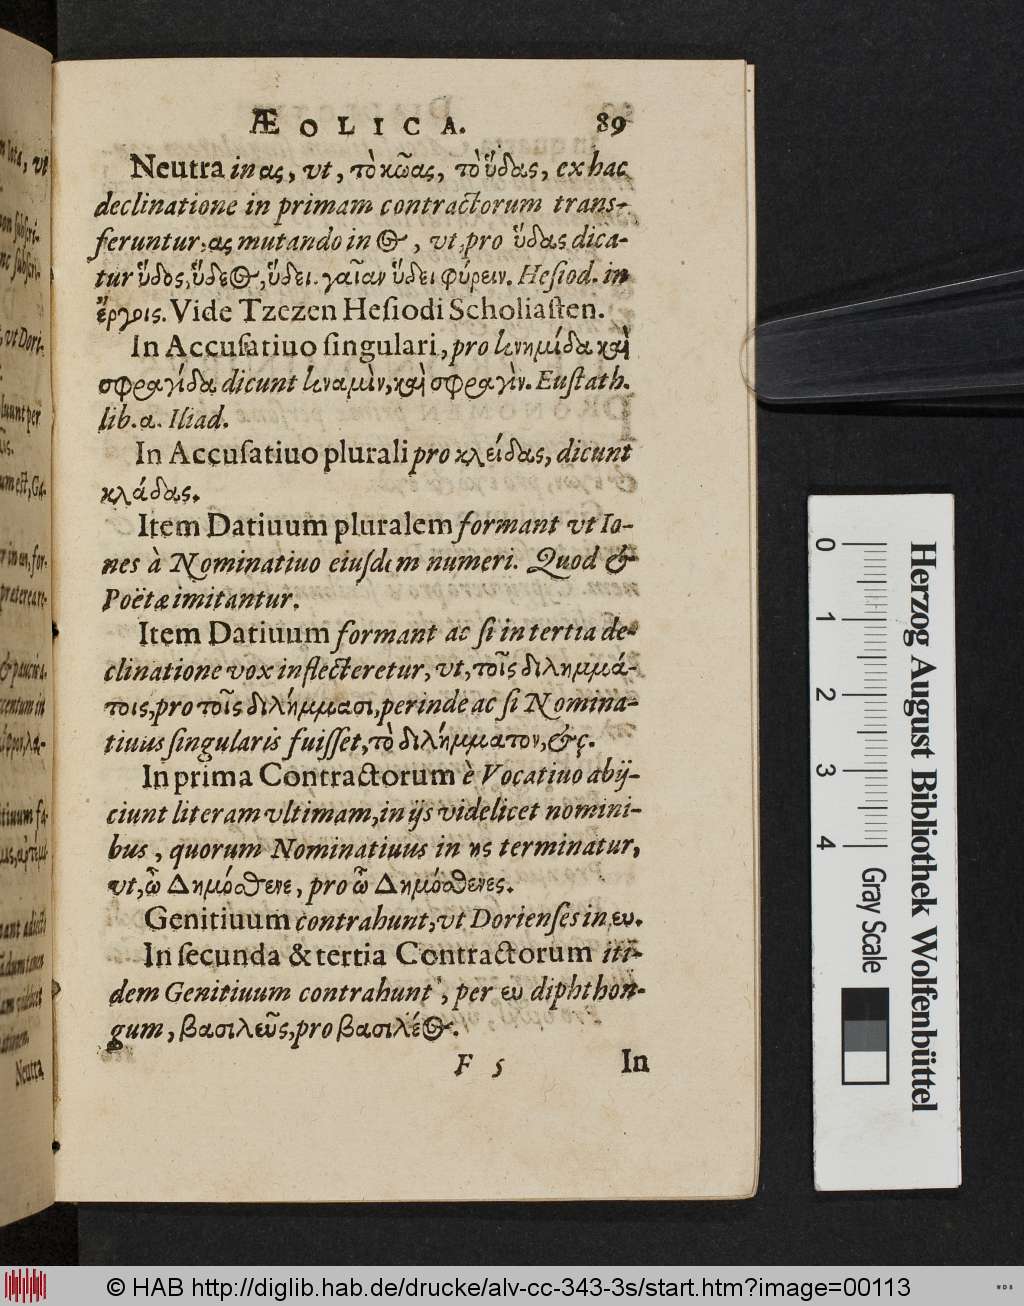 ÆOLICA. 89
Neutra in ας, vt, τὸ κῶας, τὸ ὕδας, ex hac
declinatione in primam contractorum trans-
feruntur, ας mutando in ος, vt, pro ὕδας dica-
tur ὕδος, ὕδεος, ὕδει. γαῖαν ὕδει φύρειν. Hesiod. in
ἔργοις. Vide Tzezen Hesiodi Scholiasten.
In Accusatiuo singulari, pro κνημίδα καὶ
σφραγίδα dicunt κναμὶν, καὶ σφραγὶν. Eustath.
lib. α. Iliad.
In Accusatiuo plurali pro κλείδας, dicunt
κλάδας.
Item Datiuum pluralem formant vt Io-
nes à Nominatiuo eiusdem numeri. Quod &
Poëtæ imitantur.
Item Datiuum formant ac si in tertia de-
clinatione vox inflecteretur, vt, τοῖς διλημμά-
τοις, pro τοῖς διλήμμασι, perinde ac si Nomina-
tiuus singularis fuisset, τὸ διλήμματον, &c.
In prima Contractorum è Vocatiuo abij-
ciunt literam vltimam, in ijs videlicet nomini-
bus, quorum Nominatiuus in ης terminatur,
vt, ὦ Δημόσθενε, pro ὦ Δημόσθενες.
Genitiuum contrahunt, vt Dorienses in ευ.
In secunda & tertia Contractorum iti-
dem Genitiuum contrahunt, per ευ diphthon-
gum, βασιλεῦς, pro βασιλέος.
F 5 In
Neutra
0 1 2 3 4
Herzog August Bibliothek Wolfenbüttel
Gray Scale
© HAB http://diglib.hab.de/drucke/alv-cc-343-3s/start.htm?image=00113